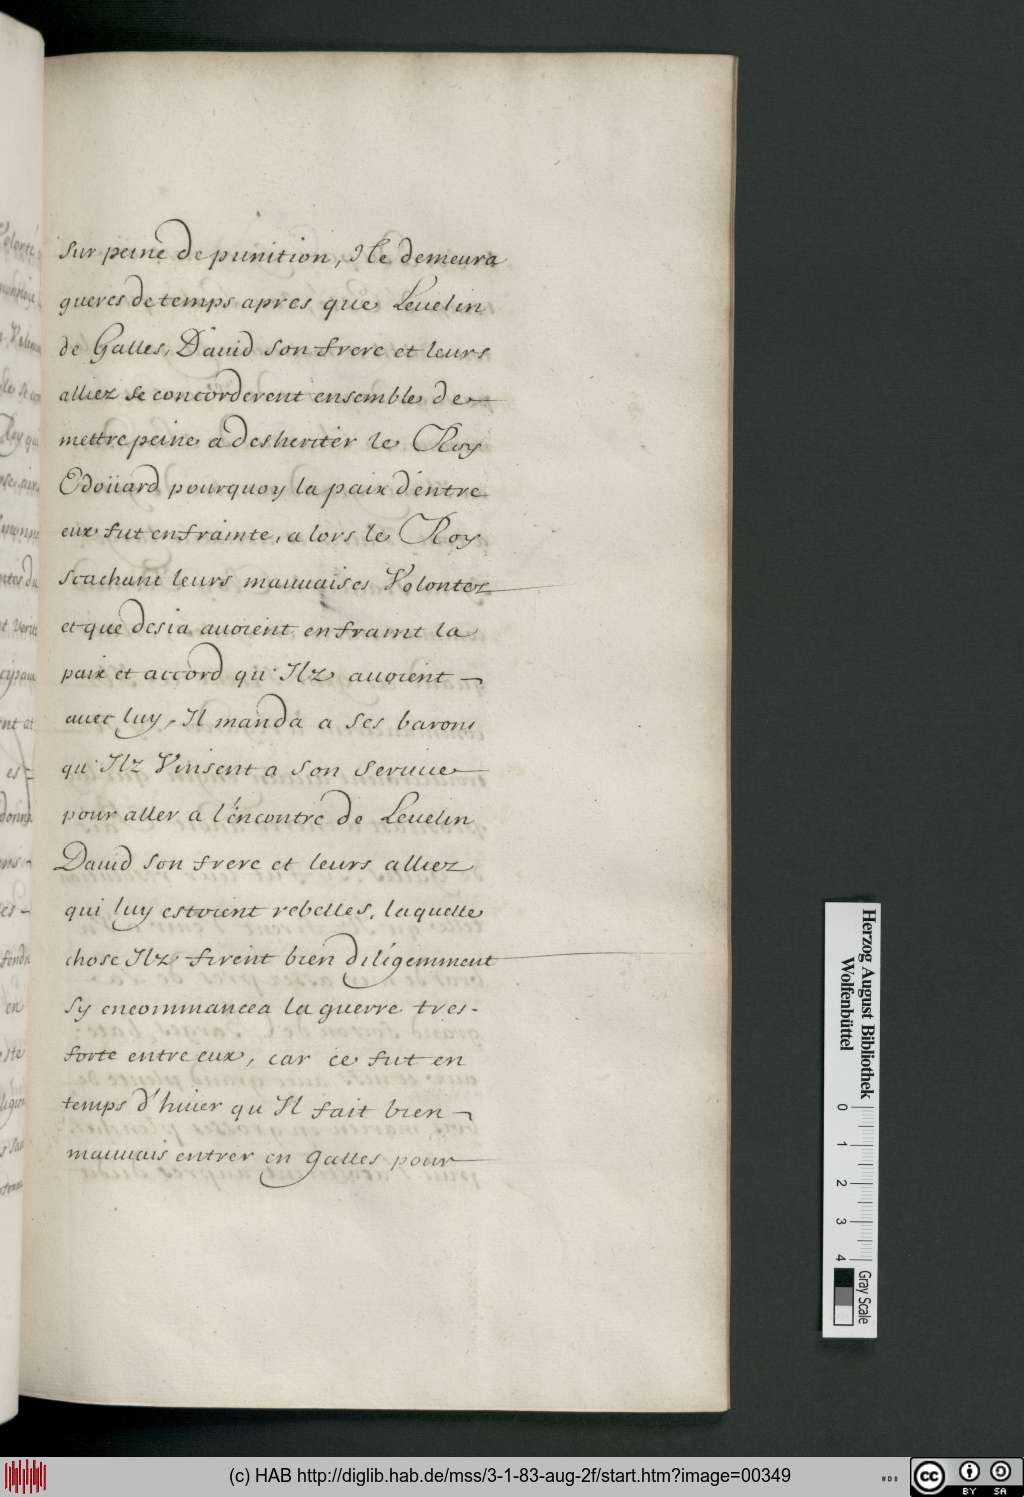 sur peine de punition, Ile demeura
gueres de temps apres que Leuelin
de Galles, Dauid son frere et leurs
alliez se concorderent ensemble de
mettre peine a desheriter le Roy
Edoüard pourquoy la paix d'entre
eux fut enfrainte, alors le Roy
scachant leurs mauuaises Volontez
et que desia auoient enfraint la
paix et accord qu'Ilz auoient ¬
auec luy, Il manda a ses barons
qu'Ilz Vinsent a son seruice
pour aller a l'encontre de Leuelin
Dauid son frere et leurs alliez
qui luy estoient rebelles, laquelle
chose Ilz firent bien diligemment
Sy encommancea la guerre tres-
forte entre eux, car ce fut en
temps d'hiuer qu Il fait bien ¬
mauuais entrer en galles pour
Herzog August Bibliothek
Wolfenbüttel
0 1 2 3 4
Gray Scale
(c) HAB http://diglib.hab.de/mss/3-1-83-aug-2f/start.htm?image=00349
cc BY SA